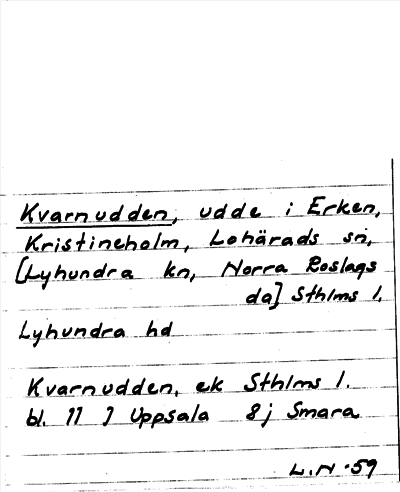 Kvarnudden, udde i Erken,
Kristineholm, Lohärads sn,
[Lyhundra kn, Norra Roslags
da] Sthlms l.
Lyhundra hd
Kvarnudden, ek Sthlms l.
bl. 11 I Uppsala 8j Smara
L.N.-59